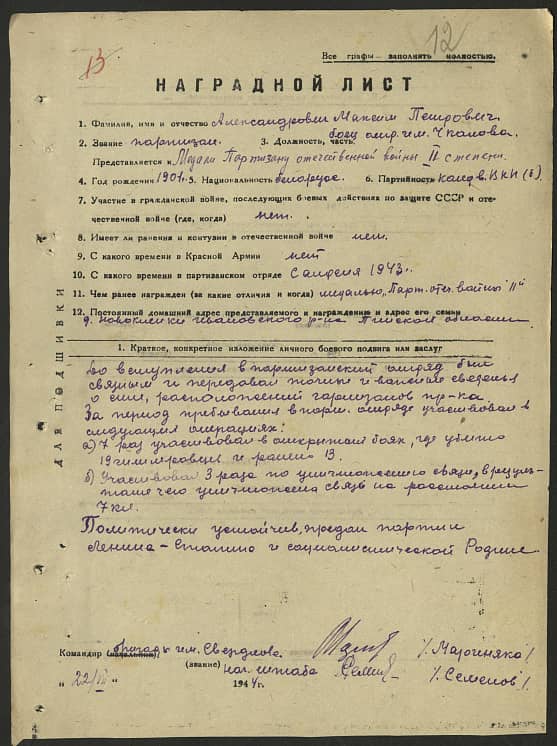 12
13
Все графы заполнять полностью.
НАГРАДНОЙ ЛИСТ
1. Фамилия, имя и отчество Александрович Максим Петрович.
2. Звание партизан. 3. Должность, часть боец отр. им. Чкалова.
Представляется к Медали Партизану отечественной войны II степени.
4. Год рождения 1901. 5. Национальность белорус. 6. Партийность канд в. ВКП(б).
7. Участие в гражданской войне, последующих боевых действиях по защите СССР и оте-
чественной войне (где, когда) нет.
8. Имеет ли ранения и контузии в отечественной войне нет.
9. С какого времени в Красной Армии нет
10. С какого времени в партизанском отряде С апреля 1943г.
11. Чем ранее награжден (за какие отличия и когда) медалью „Парт. отеч. войны II"
12. Постоянный домашний адрес представляемого к награждению и адрес его семьи
д. Новоклейки Ивановского р-на Пинской области
1. Краткое, конкретное изложение личного боевого подвига или заслуг
До вступления в партизанский отряд был
связным и передавал точные и важные сведенья
о сил, расположений гарнизонов пр-ка.
За период пребывания в парт. отряде участвовал в
следующих операциях:
а) 7 раз участвовал в открытых боях, где убито
19 гитлеровцев и ранено 13.
б) Участвовал 3 раза по уничтожению связи, в резуль-
тате чего уничтожена связь на расстоянии
7 км.
Политически устойчив, предан партии
Ленина-Сталина и социалистической Родине.
ДЛЯ ПОДШИВКИ
Командир (начальник) бригады им. Свердлова /Мартиняко/
(звание) нач. штаба /Семенов/
„22/VI" 1944г.